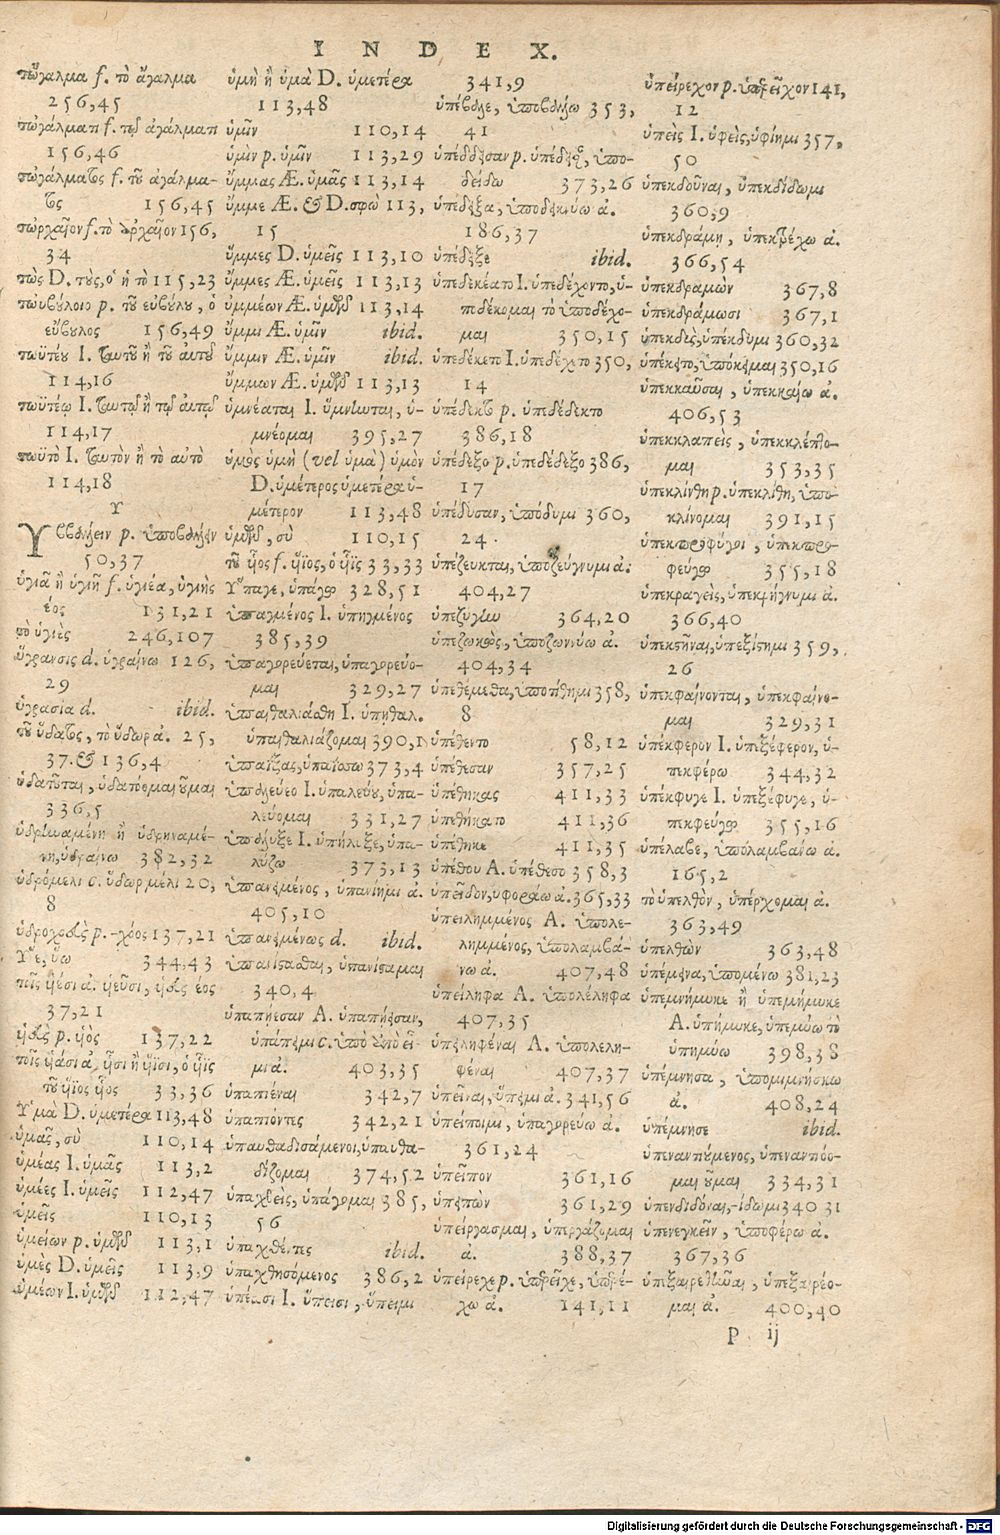 INDEX.
τὤγαλμα f. τὸ ἄγαλμα
256,45
τὠγάλματι f. τῷ ἀγάλματι
156,46
τὠγάλματος f. τοῦ ἀγάλμα-
τος 156,45
τὠρχαῖον f. τὸ ἀρχαῖον 156,
34
τὼς D. τοὺς, ὁ ἡ τὸ 115,23
τὠυβούλοιο p. τοῦ εὐβούλου, ὁ
εὔβουλος 156,49
τωϋτέου I. ταυτοῦ ἢ τοῦ αὐτοῦ
114,16
τωϋτέῳ I. ταυτῷ ἢ τῷ αὐτῷ
114,17
τωϋτὸ I. ταυτὸν ἢ τὸ αὐτὸ
114,18
Υ
Υββάλλειν p. ὑποβάλλειν
50,37
ὑγιᾶ ἢ ὑγιῆ f. ὑγιέα, ὑγιὴς
έος 131,21
τὸ ὑγιὲς 246,107
ὕγρανσις d. ὑγραίνω 126,
29
ὑγρασία d. ibid.
τοῦ ὕδατος, τὸ ὕδωρ ἀ. 25,
37. & 136,4
ὑδατοῦται, ὑδατόομαι οῦμαι
336,5
ὑδριωαμένη ἢ ὑδρηναμέ-
νη, ὑδραίνω 382,32
ὑδρόμελι c. ὕδωρ μέλι 20,
8
ὑδροχοεὺς p. -χόος 137,21
Υε, ὕω 344,43
τοῖς ὑέσι ἀ. ὑεῦσι, ὑεὺς έος
37,21
ὑεὺς p. υἱὸς 137,22
τοῖς υἱάσι ἀ. υἷσι ἢ υἵϊσι, ὁ υἷις
τοῦ υἵϊος υἷος 33,36
Υμὰ D. ὑμετέρα 113,48
ὑμᾶς, σὺ 110,14
ὑμέας I. ὑμᾶς 113,2
ὑμέες I. ὑμεῖς 112,47
ὑμεῖς 110,13
ὑμείων p. ὑμῶν 113,1
ὑμὲς D. ὑμεῖς 113,9
ὑμέων I. ὑμῶν 112,47
ὑμὴ ἢ ὑμὰ D. ὑμετέρα
113,48
ὑμῖν 110,14
ὑμὶν p. ὑμῖν 113,29
ὔμμας Æ. ὑμᾶς 113,14
ὔμμε Æ. & D. σφὼ 113,
15
ὔμμες D. ὑμεῖς 113,10
ὔμμες Æ. ὑμεῖς 113,13
ὐμμέων Æ. ὑμῶν 113,14
ὔμμι Æ. ὑμῖν ibid.
ὔμμιν Æ. ὑμῖν ibid.
ὔμμων Æ. ὑμῶν 113,13
ὑμνέαται I. ὕμνηνται, ὑ-
μνέομαι 395,27
ὑμὸς ὑμὴ (vel ὑμὰ) ὑμὸν
D. ὑμέτερος ὑμετέρα ὑ-
μέτερον 113,48
ὑμῶν, σὺ 110,15
τοῦ υἷος f. υἵϊος, ὁ υἷις 33,33
Υπαγε, ὑπάγω 328,51
ὑπαγμένος I. ὑπηγμένος
385,39
ὑπαγορεύεται, ὑπαγορεύο-
μαι 329,27
ὑπαιθαλιάσθη I. ὑπῃθαλ.
ὑπαιθαλιάζομαι 390,1
ὑπαΐξας, ὑπαΐσσω 373,4
ὑπαλεύεο I. ὑπαλεύου, ὑπα-
λεύομαι 331,27
ὑπάλυξε I. ὑπήλυξε, ὑπα-
λύζω 373,13
ὑπανειμένος, ὑπανίημι ἀ.
405,10
ὑπανειμένως d. ibid.
ὑπανίστασθαι, ὑπανίσταμαι
340,4
ὑπαπήεσαν A. ὑπαπῄεισαν,
ὑπάπειμι c. ὑπὸ ἀπὸ εἶ-
μι ἀ. 403,35
ὑπαπιέναι 342,7
ὑπαπιόντες 342,21
ὑπαυθαδισάμενοι, ὑπαυθα-
δίζομαι 374,52
ὑπαχθεὶς, ὑπάγομαι 385,
56
ὑπαχθέντες ibid.
ὑπαχθησόμενος 386,2
ὑπέασι I. ὕπεισι, ὕπειμι
341,9
ὑπέβαλλε, ὑποβάλλω 353,
41
ὑπέδδεισαν p. ὑπέδεισαν, ὑπο-
δείδω 373,26
ὑπέδειξα, ὑποδεικνύω ἀ.
186,37
ὑπέδειξε ibid.
ὑπεδεκέατο I. ὑπεδέχοντο, ὑ-
ποδέκομαι τὸ ὑποδέχο-
μαι 350,15
ὑπεδέκετο I. ὑπεδέχετο 350,
14
ὑπέδεκτο p. ὑπεδέδεκτο
386,18
ὑπέδεξο p. ὑπεδέδεξο 386,
17
ὑπέδυσαν, ὑπόδυμι 360,
24.
ὑπέζευκται, ὑποζεύγνυμι ἀ.
404,27
ὑπεζύγην 364,20
ὑπεζωκὼς, ὑποζωννύω ἀ.
404,34
ὑπεθέμεθα, ὑποτίθημι 358,
8
ὑπέθεντο 58,12
ὑπέθεσαν 357,25
ὑπέθηκας 411,33
ὑπεθήκατο 411,36
ὑπέθηκε 411,35
ὑπέθου A. ὑπέθεσο 358,3
ὑπεῖδον, ὑφοράω ἀ. 365,33
ὑπειλημμένος A. ὑπολε-
λημμένος, ὑπολαμβά-
νω ἀ. 407,48
ὑπείληφα A. ὑπολέληφα
407,35
ὑπειληφέναι A. ὑπολελη-
φέναι 407,37
ὑπεῖναι, ὕπειμι ἀ. 341,56
ὑπείποιμι, ὑπαγορεύω ἀ.
361,24
ὑπεῖπον 361,16
ὑπειπὼν 361,29
ὑπείργασμαι, ὑπεργάζομαι
ἀ. 388,37
ὑπείρεχε p. ὑπερεῖχε, ὑπερέ-
χω ἀ. 141,11
ὑπείρεχον p. ὑπερεῖχον 141,
12
ὑπεὶς I. ὑφεὶς, ὑφίημι 357,
50
ὑπεκδοῦναι, ὑπεκδίδωμι
360,9
ὑπεκδράμῃ, ὑπεκτρέχω ἀ.
366,54
ὑπεκδραμὼν 367,8
ὑπεκδράμωσι 367,1
ὑπεκδὺς, ὑπέκδυμι 360,32
ὑπέκειτο, ὑπόκειμαι 350,16
ὑπεκκαῦσαι, ὑπεκκαίω ἀ.
406,53
ὑπεκκλαπεὶς, ὑπεκκλέπτο-
μαι 353,35
ὑπεκλίνθη p. ὑπεκλίθη, ὑπο-
κλίνομαι 391,15
ὑπεκπροφύγοι, ὑπεκπρο-
φεύγω 355,18
ὑπεκραγεὶς, ὑπεκρήγνυμι ἀ.
366,40
ὑπεκστῆναι, ὑπεξίστημι 359,
26
ὑπεκφαίνονται, ὑπεκφαίνο-
μαι 329,31
ὑπέκφερον I. ὑπεξέφερον, ὑ-
πεκφέρω 344,32
ὑπέκφυγε I. ὑπεξέφυγε, ὑ-
πεκφεύγω 355,16
ὑπέλαβε, ὑπολαμβάνω ἀ.
165,2
τὸ ὑπελθὸν, ὑπέρχομαι ἀ.
363,49
ὑπελθὼν 363,48
ὑπέμεινα, ὑπομένω 381,23
ὑπεμνήμυκε ἢ ὑπεμήμυκε
A. ὑπήμυκε, ὑπεμύω τὸ
ὑπημύω 398,38
ὑπέμνησα, ὑπομιμνήσκω
ἀ. 408,24
ὑπέμνησε ibid.
ὑπεναντιούμενος, ὑπεναντιόο-
μαι οῦμαι 334,31
ὑπενδιδόναι, -ίδωμι 340 31
ὑπενεγκεῖν, ὑποφέρω ἀ.
367,36
ὑπεξαιρεθῆναι, ὑπεξαιρέο-
μαι ἀ. 400,40
p ij
Digitalisierung gefördert durch die Deutsche Forschungsgemeinschaft - DFG